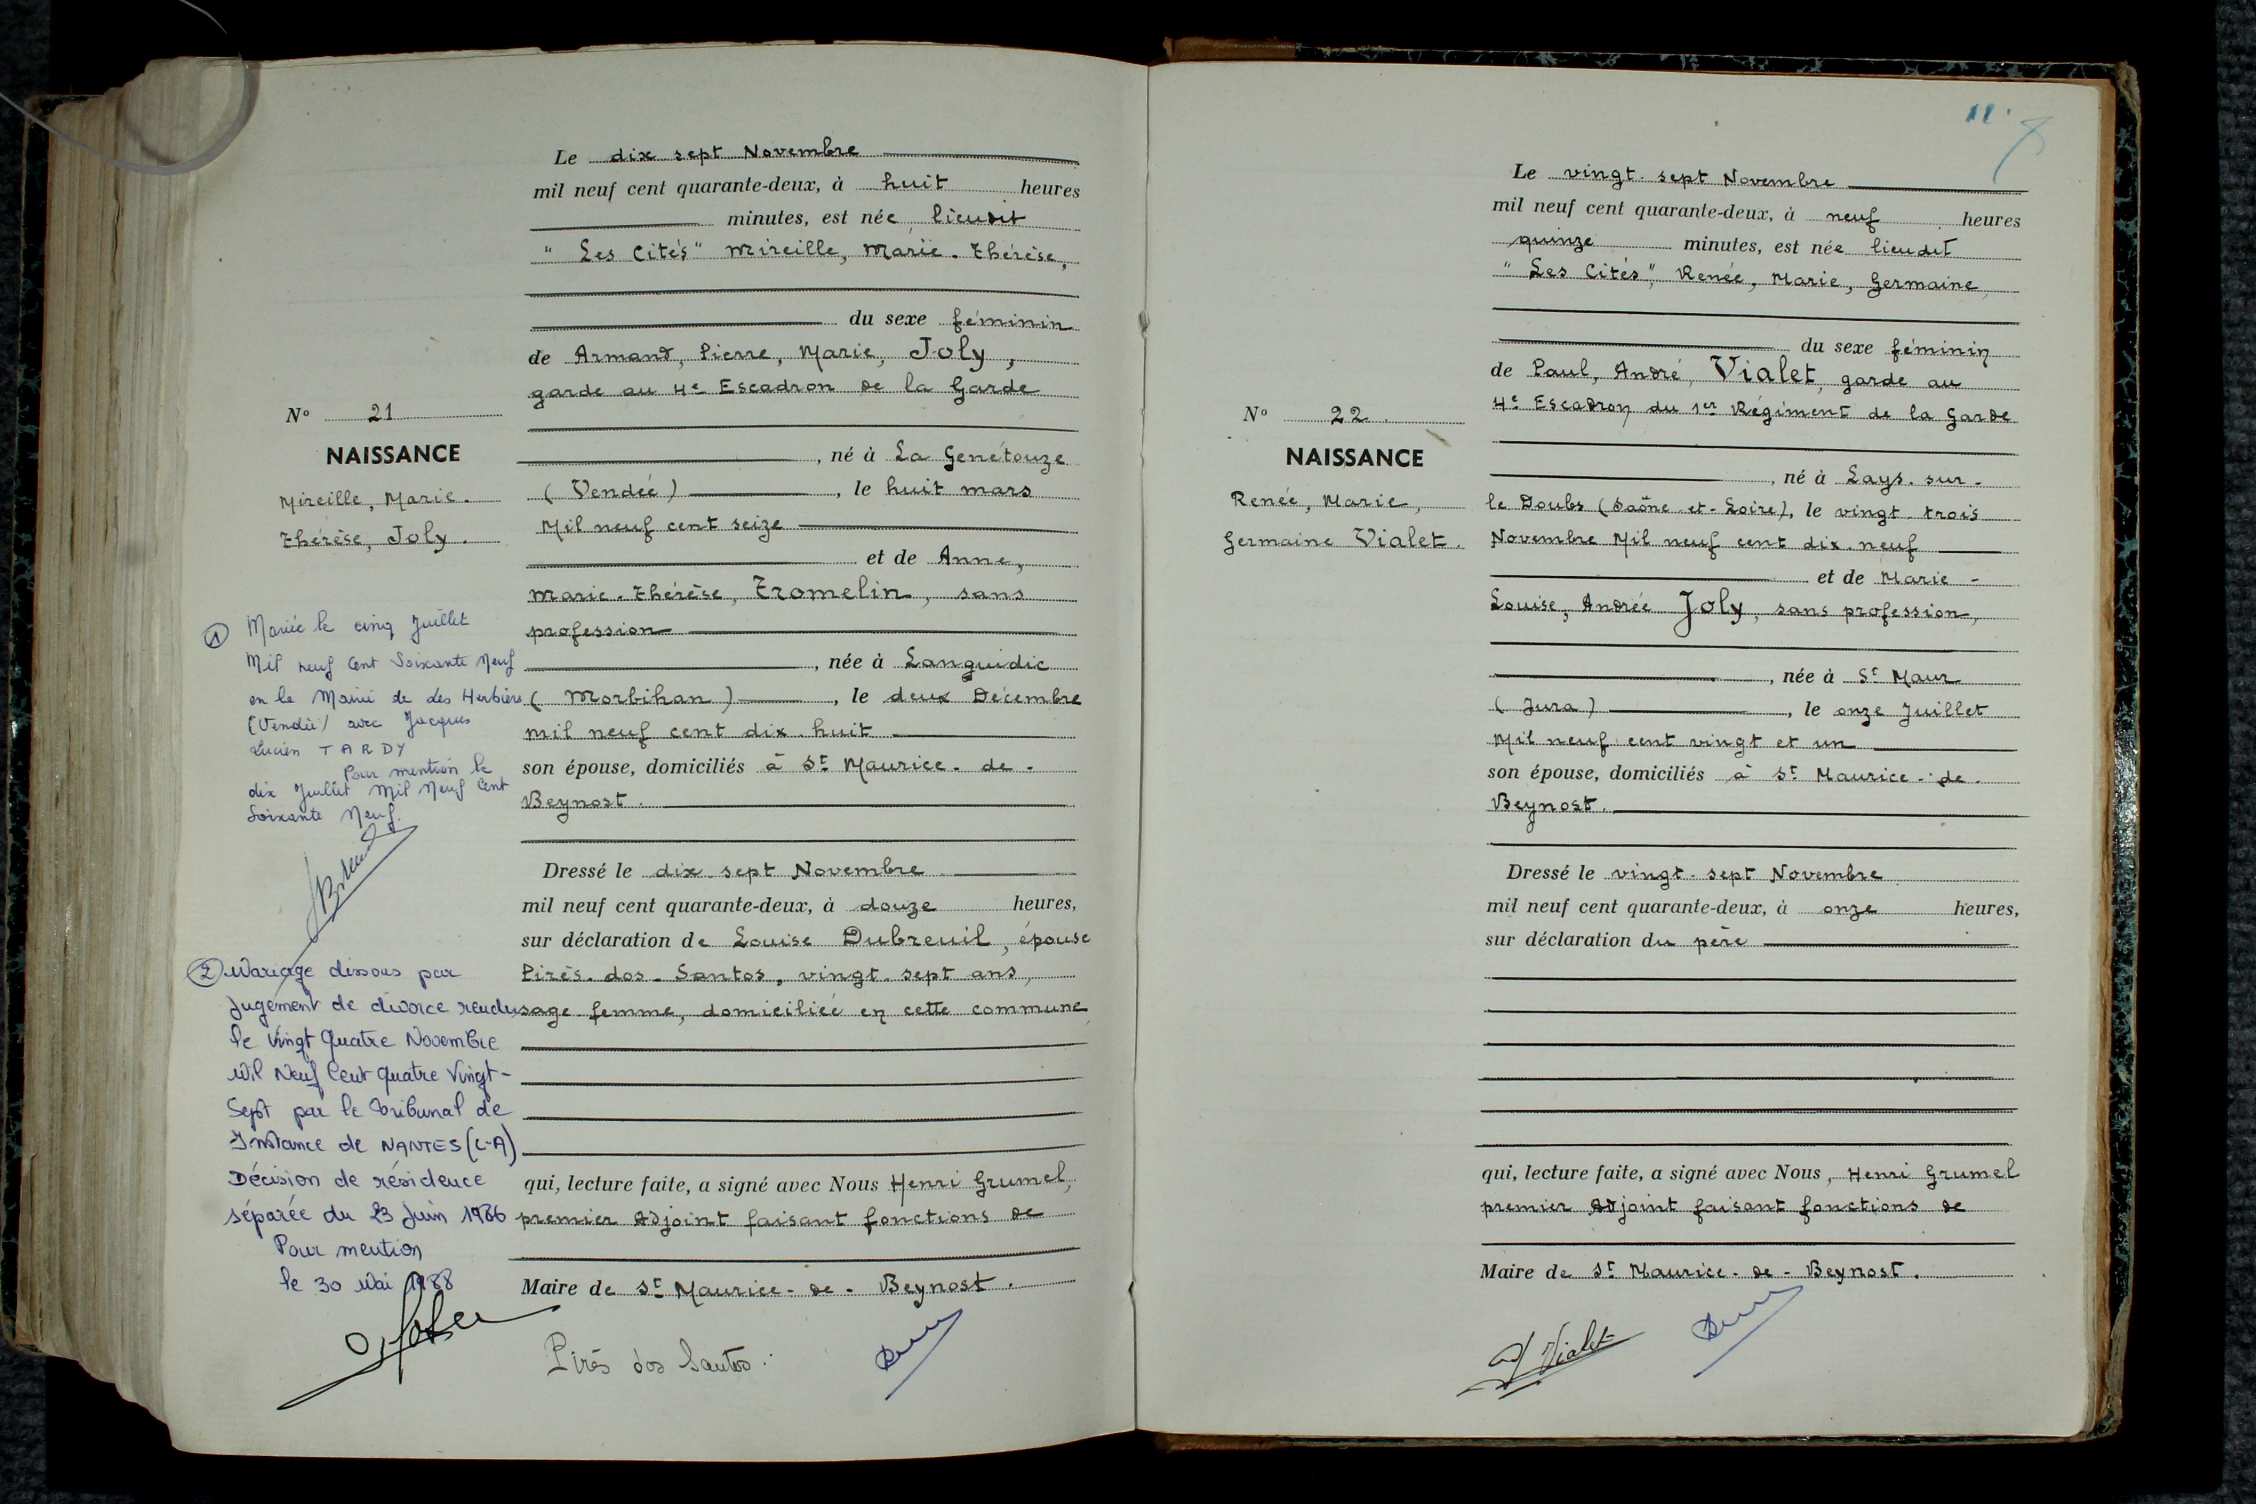 Le dix sept Novembre
mil neuf cent quarante-deux, à huit heures
minutes, est née lieudit
" Les Cités " Mireille, Marie-Thérèse,
du sexe féminin
de Armand, Pierre, Marie, Joly,
garde au 4e Escadron de la Garde
, né à La Genétouze
(Vendée), le huit mars
Mil neuf cent seize
et de Anne,
Marie-Thérèse, Tromelin, sans
profession
, née à Languidic
(Morbihan), le deux Décembre
mil neuf cent dix-huit
son épouse, domiciliés à St Maurice-de-
Beynost.
Dressé le dix sept Novembre
mil neuf cent quarante-deux, à douze heures,
sur déclaration de Louise Dubreuil, épouse
Pirès-dos-Santos, vingt-sept ans,
sage femme, domiciliée en cette commune
qui, lecture faite, a signé avec Nous Henri Grumel,
premier Adjoint faisant fonctions de
Maire de St Maurice-de-Beynost.
Pirès dos Santos
No 21
NAISSANCE
Mireille, Marie-
Thérèse, Joly.
1 Mariée le cinq Juillet
Mil neuf Cent Soixante Neuf
en la Mairie de Les Herbiers
(Vendée) avec Jacques
Lucien TARDY
Pour mention le
dix Juillet Mil Neuf Cent
Soixante Neuf.
2 Mariage dissous par
Jugement de divorce rendu
le Vingt Quatre Novembre
Mil Neuf Cent Quatre Vingt-
Sept par le Tribunal de
Instance de NANTES (L-A)
Décision de résidence
séparée du 23 Juin 1986
Pour mention
le 30 Mai 1988
11.
Le vingt-sept Novembre
mil neuf cent quarante-deux, à neuf heures
quinze minutes, est née lieudit
" Les Cités ", Renée, Marie, Germaine,
du sexe féminin
de Paul, André, Vialet, garde au
4e Escadron du 1er Régiment de la Garde
, né à Lays-sur-
le Doubs (Saône-et-Loire), le vingt-trois
Novembre Mil neuf cent dix-neuf
et de Marie-
Louise, Andrée Joly, sans profession,
, née à St Maur
(Jura), le onze Juillet
Mil neuf cent vingt et un
son épouse, domiciliés à St Maurice-de-
Beynost.
Dressé le vingt-sept Novembre
mil neuf cent quarante-deux, à onze heures,
sur déclaration du père
qui, lecture faite, a signé avec Nous, Henri Grumel
premier Adjoint faisant fonctions de
Maire de St Maurice-de-Beynost.
Vialet
No 22.
NAISSANCE
Renée, Marie,
Germaine Vialet.